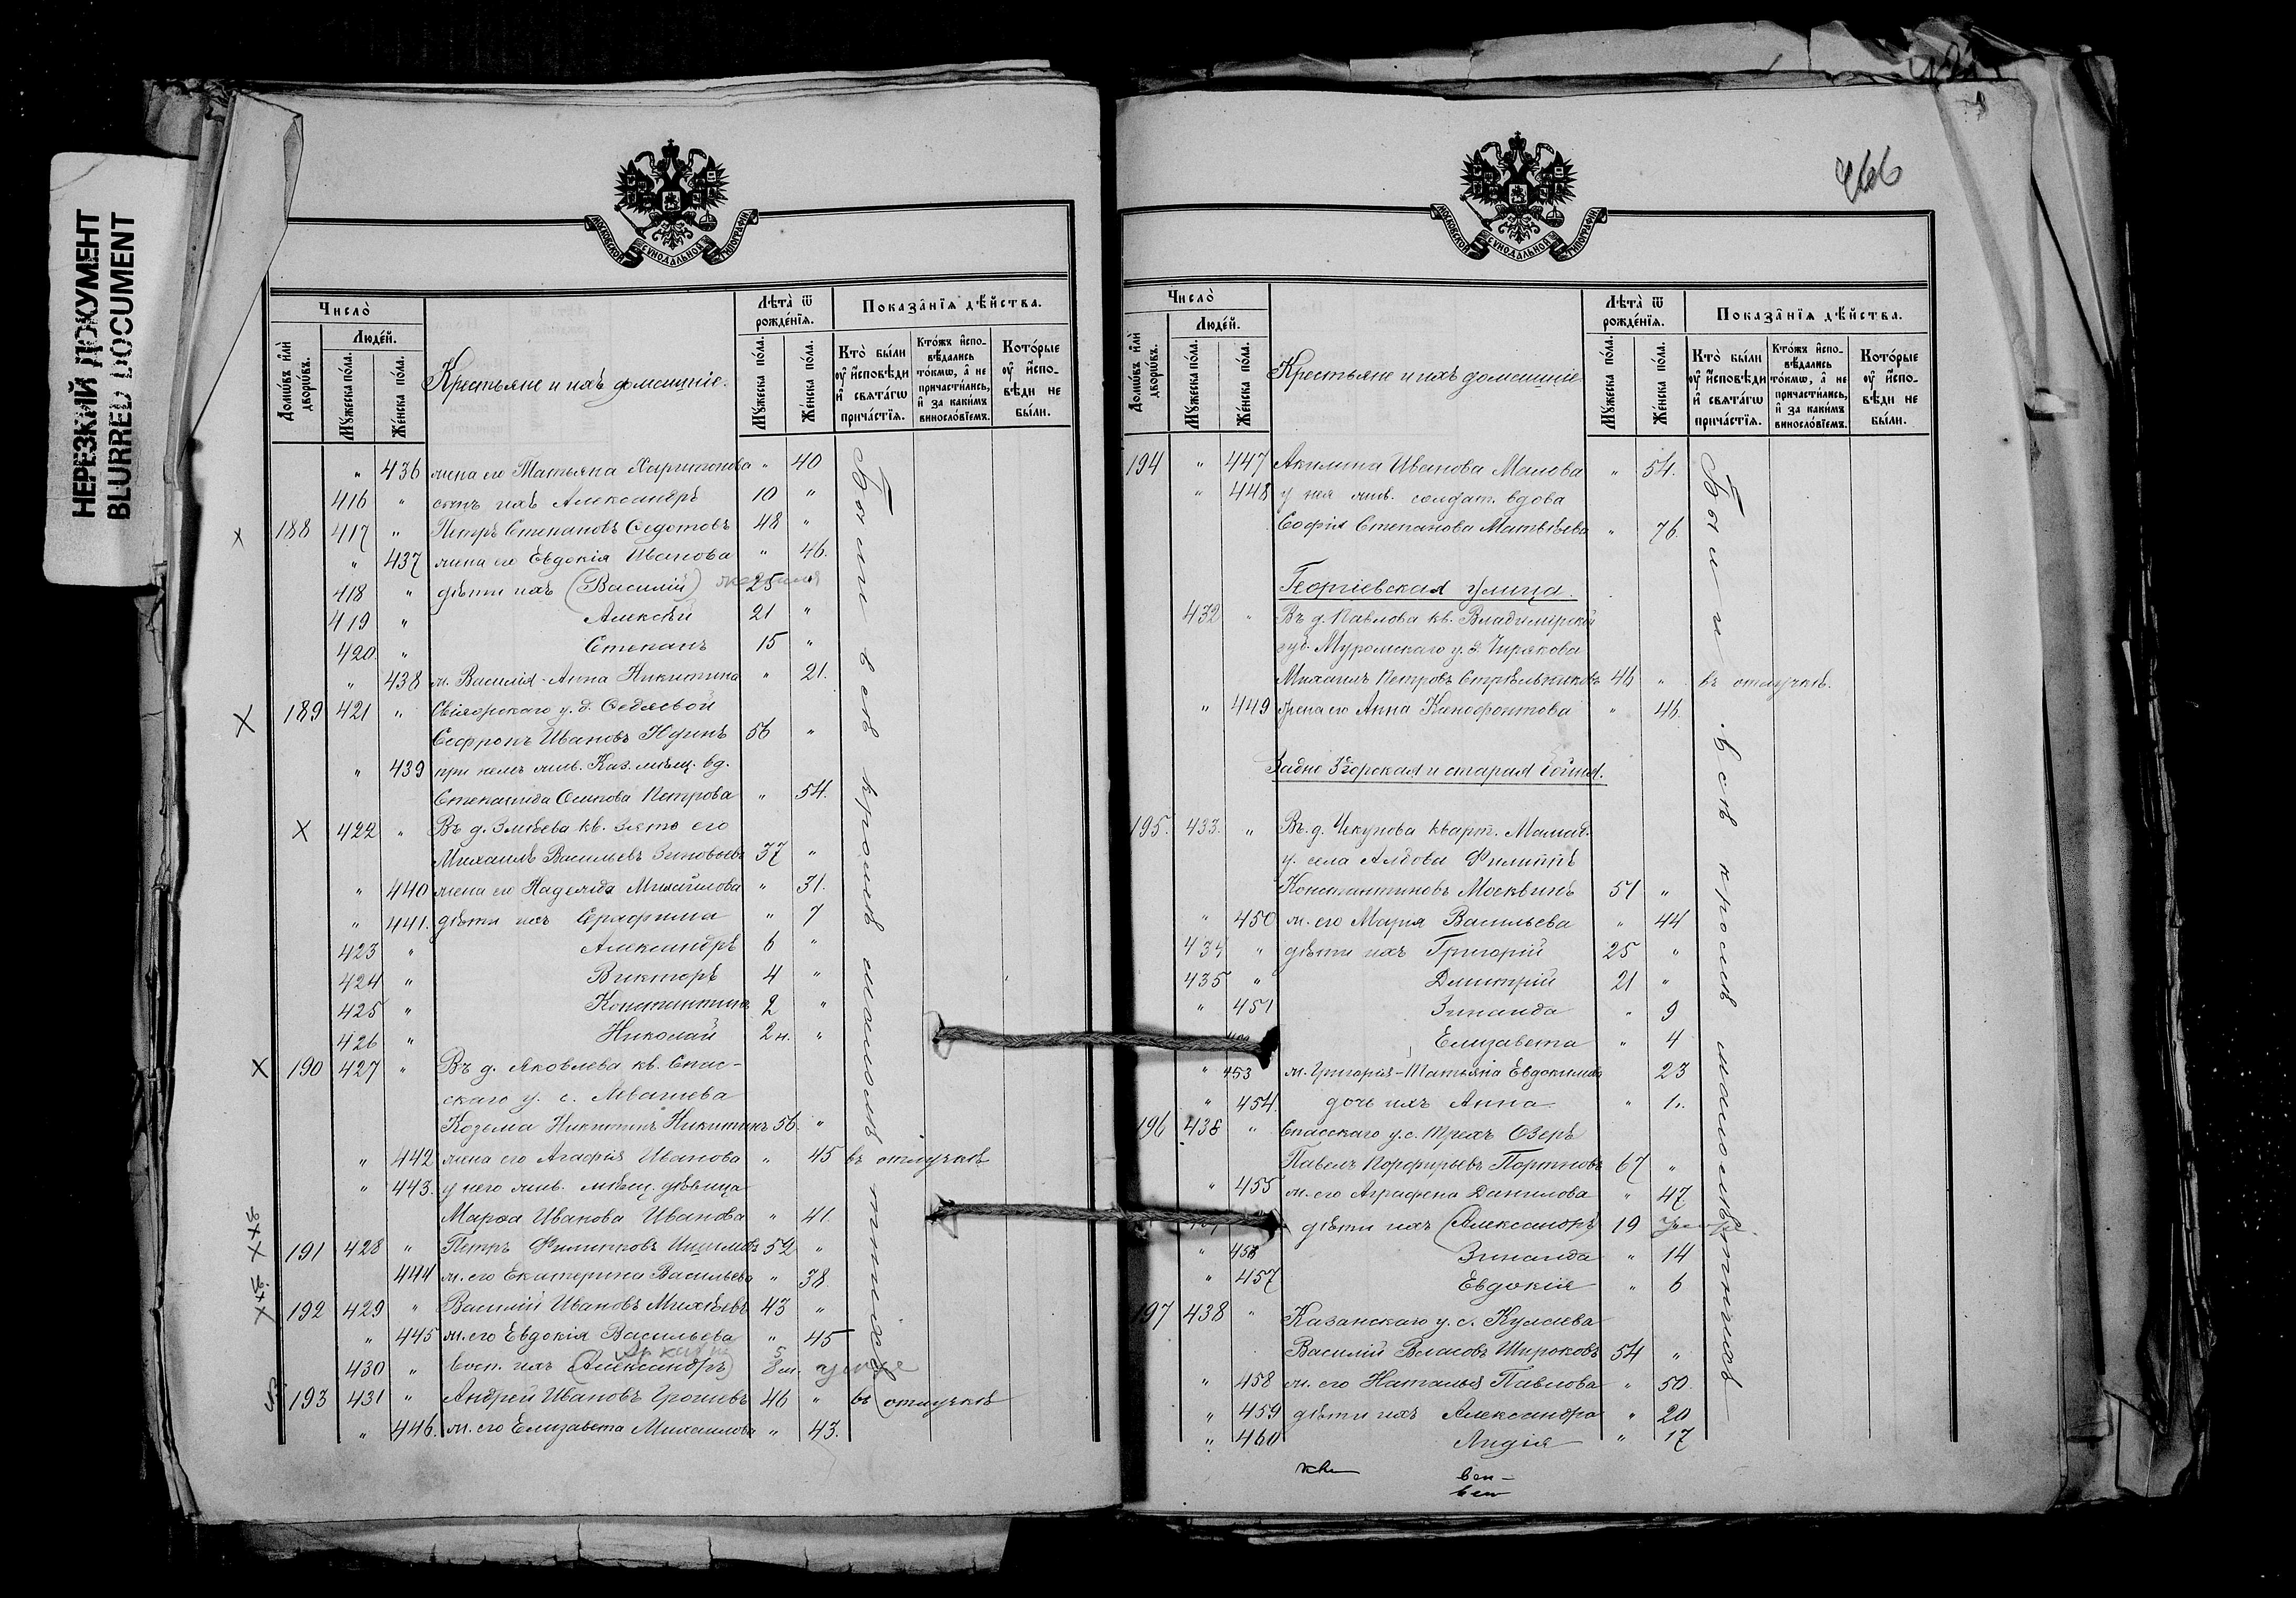 НЕРЕЗКИЙ ДОКУМЕНТ
BLURRED DOCUMENT
МОСКОВСКОЙ СУНОДАЛЬНОЙ ТИПОГРАФІИ
Число̀
Людéй.
Домѡвъ и҆лѝ дворѡвъ.
Мꙋжеска пóла.
Жéнска пóла.
Крестьяне и ихъ домашніе.
Лѣта̀ ѿ рождéнїѧ.
Мꙋжеска пóла.
Жéнска пóла.
Показа̂нїѧ дѣ́йства.
Кто̀ бы́ли ᲂу҆ и҆сповѣди и҆ свѧтáгѡ причáстїѧ.
Ктóжъ и҆сповѣ̀дались тóкмѡ, а҆ не причасти́лись, и҆ за каки́мъ винослóвїемъ.
Котóрые ᲂу҆ и҆сповѣди не бы́ли.
Были всѣ кромѣ малолѣтнихъ
" 436 жена его Татьяна Харитонова " 40
416 " сынъ ихъ Александръ 10 "
188 417 " Петръ Степановъ Ѳедотовъ 48 "
" 437 жена его Евдокія Иванова " 46.
418 " дѣти ихъ (Василій) 25 "
419 " Алексѣй 21 "
420. " Степанъ 15 "
" 438 ж. Василія - Анна Никитина " 21.
189 421 " Свіяжскаго у. д.
Софронъ Ивановъ Юдинъ 56 "
" 439 при немъ жив. Каз. мѣщ. вд.
Степанида Осипова Петрова " 54.
422 " Въ д. Змѣева кв. зять его
Михаилъ Васильевъ Зиновьевъ 37 "
" 440 жена его Надежда Михайлова " 31.
" 441. дѣти ихъ Серафима " 7
423 " Александръ 6 "
424 " Викторъ 4 "
425 " Константинъ 2 "
426 " Николай 2 н. "
190 427 " Въ д. Яковлева кв. Спас-
скаго у. с.
Козьма Никитинъ Никитинъ 56. "
" 442 жена его Агафія Иванова " 45 въ отлучкѣ
" 443. у него жив. мѣщ. дѣвица
Марѳа Иванова Иванова " 41.
191 428 " Петръ Филипповъ 52 "
444 ж. его Екатерина Васильева " 38.
192 429 " Василій Ивановъ Михѣевъ 43 "
" 445 ж. его Евдокія Васильева " 45
430 " Восп. ихъ (Александръ) 8 м.
193 431 " Андрей Ивановъ 46 " въ отлучкѣ
" 446. ж. его Елизавета Михаилова " 43.
466
МОСКОВСКОЙ СУНОДАЛЬНОЙ ТИПОГРАФІИ
Число̀
Людéй.
Домѡвъ и҆лѝ дворѡвъ.
Мꙋжеска пóла.
Жéнска пóла.
Крестьяне и ихъ домашніе
Лѣта̀ ѿ рождéнїѧ.
Мꙋжеска пóла.
Жéнска пóла.
Показа̂нїѧ дѣ́йства.
Кто̀ бы́ли ᲂу҆ и҆сповѣди и҆ свѧтáгѡ причáстїѧ.
Ктóжъ и҆сповѣ̀дались тóкмѡ, а҆ не причасти́лись, и҆ за каки́мъ винослóвїемъ.
Котóрые ᲂу҆ и҆сповѣди не бы́ли.
Были всѣ кромѣ малолѣтнихъ
194 " 447 Акилина Иванова Малова " 54.
" 448 у нея жив. солдат. вдова
Софія Степанова Матвѣева " 76.
Георгіевская улица.
432 " Въ д. Павлова кв. Владимірской
губ. Муромскаго у. д.
Михаилъ Петровъ Стрѣльниковъ 46 " въ отлучкѣ.
" 449 жена его Анна Ксенофонтова " 46.
195. 433. " Въ д. Чекунова кварт. Мамад.
у. села Филиппъ
Константиновъ Москвинъ 51 "
" 450 ж. его Марія Васильева " 44
434 " дѣти ихъ Григорій 25 "
435 " Дмитрій 21 "
" 451 Зинаида " 9
Елизавета " 4
" 453 ж. Григорія - Татьяна Евдокимова 23
" 454. дочь ихъ Анна " 1.
196 438 " Спасскаго у. с. Трехъ Озеръ
Павелъ Порфирьевъ Портновъ 67 "
" 455 ж. его Аграфена Данилова " 47
дѣти ихъ (Александръ) 19
" 456 Зинаида " 14
" 457 Евдокія " 6
197 438 " Казанскаго у. с. Кулаева
Василій Власовъ Широковъ 54 "
" 458 ж. его Наталья Павлова " 50.
" 459 дѣти ихъ Александра " 20
" 460 Лидія " 17